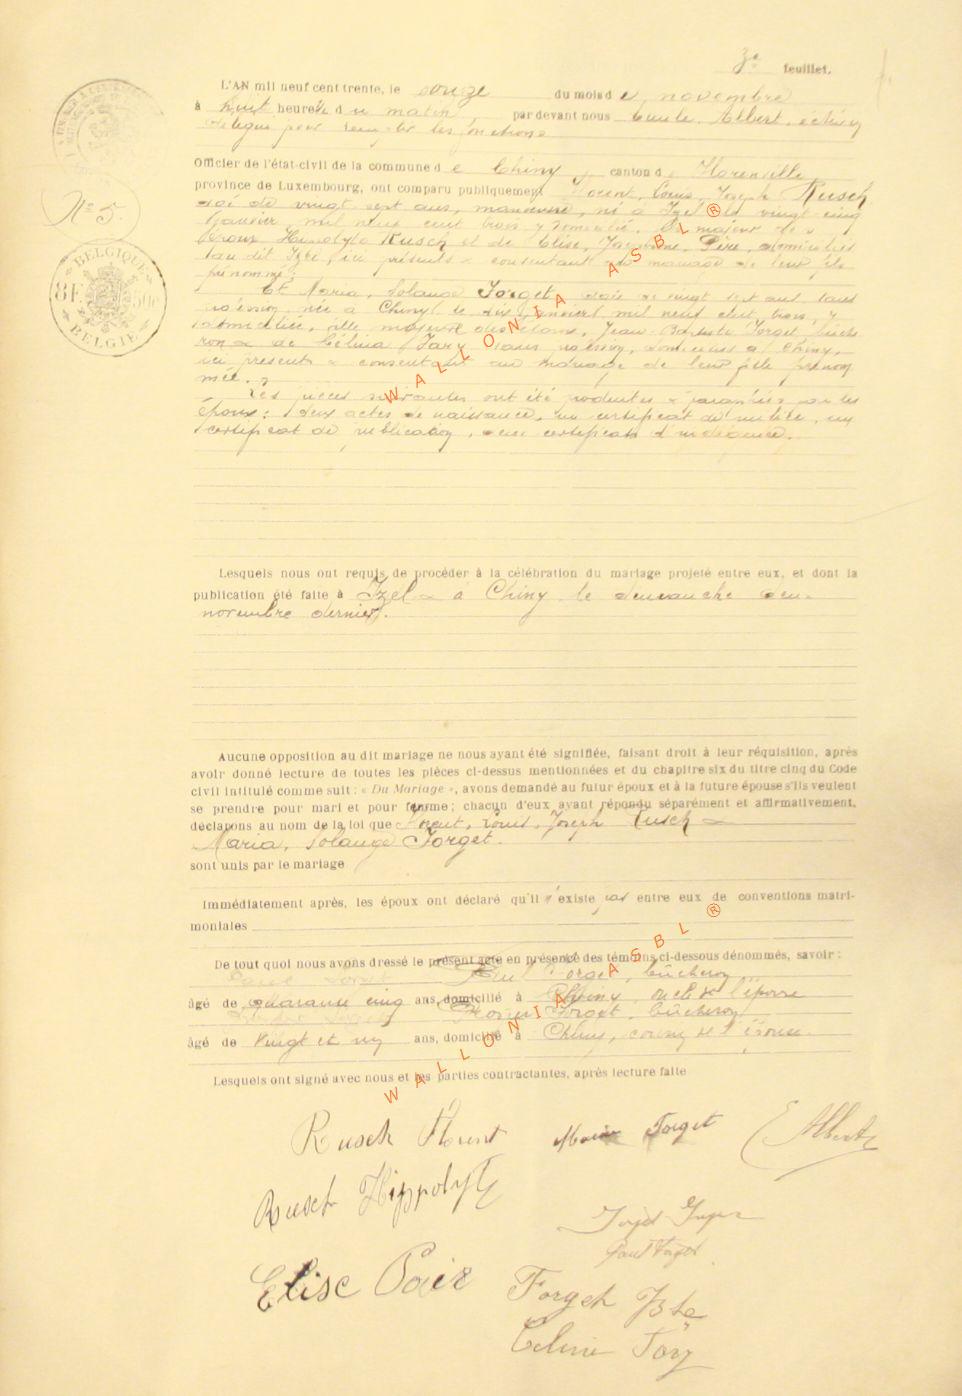 3e feuillet.
L'AN mil neuf cent trente, le onze du mois d e novembre
à huit heures d u matin par devant nous Emile Albert, échevin
délégué pour remplir les fonctions
Officier de l'état-civil de la commune d e Chiny canton d e Florenville
province de Luxembourg, ont comparu publiquement Florent, Louis, Joseph Rusch
âgé de vingt sept ans, manœuvre, né à Izel le vingt cinq
Janvier mil neuf cent trois y domicilié, fils majeur des
époux Hippolyte Rusch et de Elise, Père, domiciliés
au dit Izel, ici présents & consentant au mariage de leur fils
prénommé;
Et Maria, Solange Forget, âgée de vingt sept ans, sans
profession, née à Chiny le dix Janvier mil neuf cent trois, y
domiciliée, fille majeure des époux Jean Baptiste Forget, bûche
ron & de Célina Jary sans profession, domiciliés à Chiny,
ici présents & consentant au mariage de leur fille prénom
mée.
Les pièces suivantes ont été produites & paraphées par les
époux: deux actes de naissance, un certificat de milice, un
certificat de publication, deux certificats d'indigence.
Nº 5.
BELGIQUE
8F.
BELGIË
Lesquels nous ont requis de procéder à la célébration du mariage projeté entre eux, et dont la
publication été faite à Izel & à Chiny le dimanche deux
novembre dernier.
Aucune opposition au dit mariage ne nous ayant été signifiée, faisant droit à leur réquisition, après
avoir donné lecture de toutes les pièces ci-dessus mentionnées et du chapitre six du titre cinq du Code
civil intitulé comme suit : « Du Mariage », avons demandé au futur époux et à la future épouse s'ils veulent
se prendre pour mari et pour femme ; chacun d'eux ayant répondu séparément et affirmativement,
déclarons au nom de la loi que Florent, Louis, Joseph Rusch &
Maria, Solange Forget.
sont unis par le mariage
Immédiatement après, les époux ont déclaré qu'il n'existe pas entre eux de conventions matri-
moniales
De tout quoi nous avons dressé le présent acte en présence des témoins ci-dessous dénommés, savoir :
Paul Forget, bûcheron,
âgé de quarante cinq ans, domicilié à Chiny, oncle de l'épouse
Forget, bûcheron
âgé de vingt et un ans, domicilié à Chiny, cousin de l'épouse.
Lesquels ont signé avec nous et les parties contractantes, après lecture faite
Rusch Florent Maria Forget EAlbert
Rusch Hippolyte
Forget
Paul Forget
Elise Père
Forget Jbte
Celina Jary
WALLONIA ASBL ®
WALLONIA ASBL ®